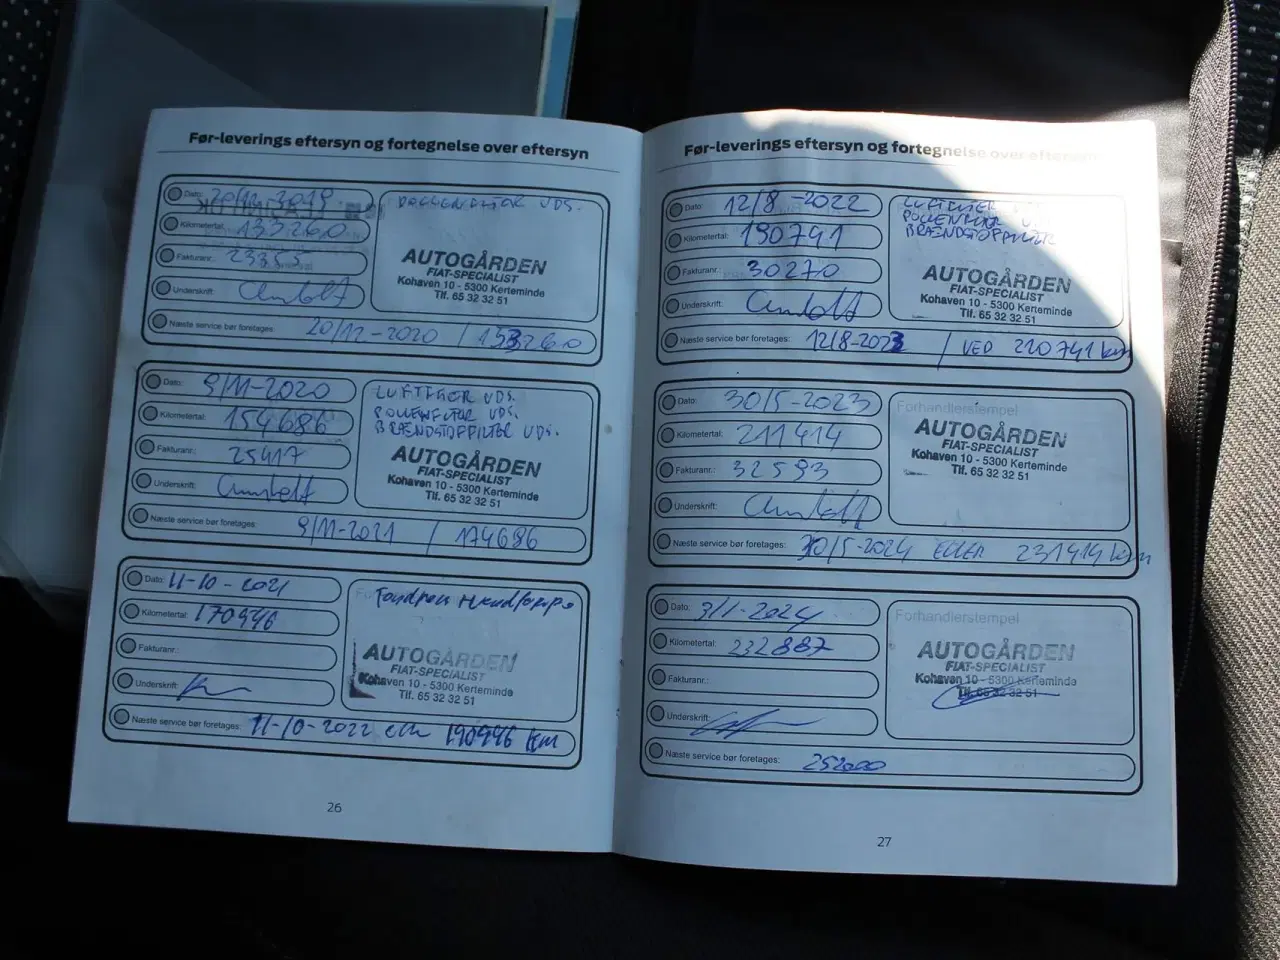 Før-leverings eftersyn og fortegnelse over eftersyn
Dato: 20/12-2019
POLLENFILTER UDS.
Kilometertal: 133260
Fakturanr.: 23355
Underskrift:
AUTOGÅRDEN
FIAT-SPECIALIST
Kohaven 10 - 5300 Kerteminde
Tlf. 65 32 32 51
Næste service bør foretages: 20/12-2020 / 153260
Dato: 9/11-2020
LUFTFILTER UDS.
POLLENFILTER UDS.
BRÆNDSTOFFILTER UDS.
Kilometertal: 154686
Fakturanr.: 25417
Underskrift:
AUTOGÅRDEN
FIAT-SPECIALIST
Kohaven 10 - 5300 Kerteminde
Tlf. 65 32 32 51
Næste service bør foretages: 9/11-2021 / 174686
Dato: 11-10-2021
Kilometertal: 170946
Fakturanr.:
Underskrift:
AUTOGÅRDEN
FIAT-SPECIALIST
Kohaven 10 - 5300 Kerteminde
Tlf. 65 32 32 51
Næste service bør foretages: 11-10-2022 190946 km
26
Før-leverings eftersyn og fortegnelse over eftersyn
Dato: 12/8-2022
LUFTFILTER UDS.
POLLENFILTER UDS.
BRÆNDSTOFFILTER
Kilometertal: 190741
Fakturanr.: 30270
Underskrift:
AUTOGÅRDEN
FIAT-SPECIALIST
Kohaven 10 - 5300 Kerteminde
Tlf. 65 32 32 51
Næste service bør foretages: 12/8-2023 / VED 210741 km
Dato: 30/5-2023
Forhandlerstempel
Kilometertal: 211414
Fakturanr.: 32593
Underskrift:
AUTOGÅRDEN
FIAT-SPECIALIST
Kohaven 10 - 5300 Kerteminde
Tlf. 65 32 32 51
Næste service bør foretages: 30/5-2024 ELLER 231414 km
Dato: 9/1-2024
Forhandlerstempel
Kilometertal: 232887
Fakturanr.:
Underskrift:
AUTOGÅRDEN
FIAT-SPECIALIST
Kohaven 10 - 5300 Kerteminde
Tlf. 65 32 32 51
Næste service bør foretages: 252000
27